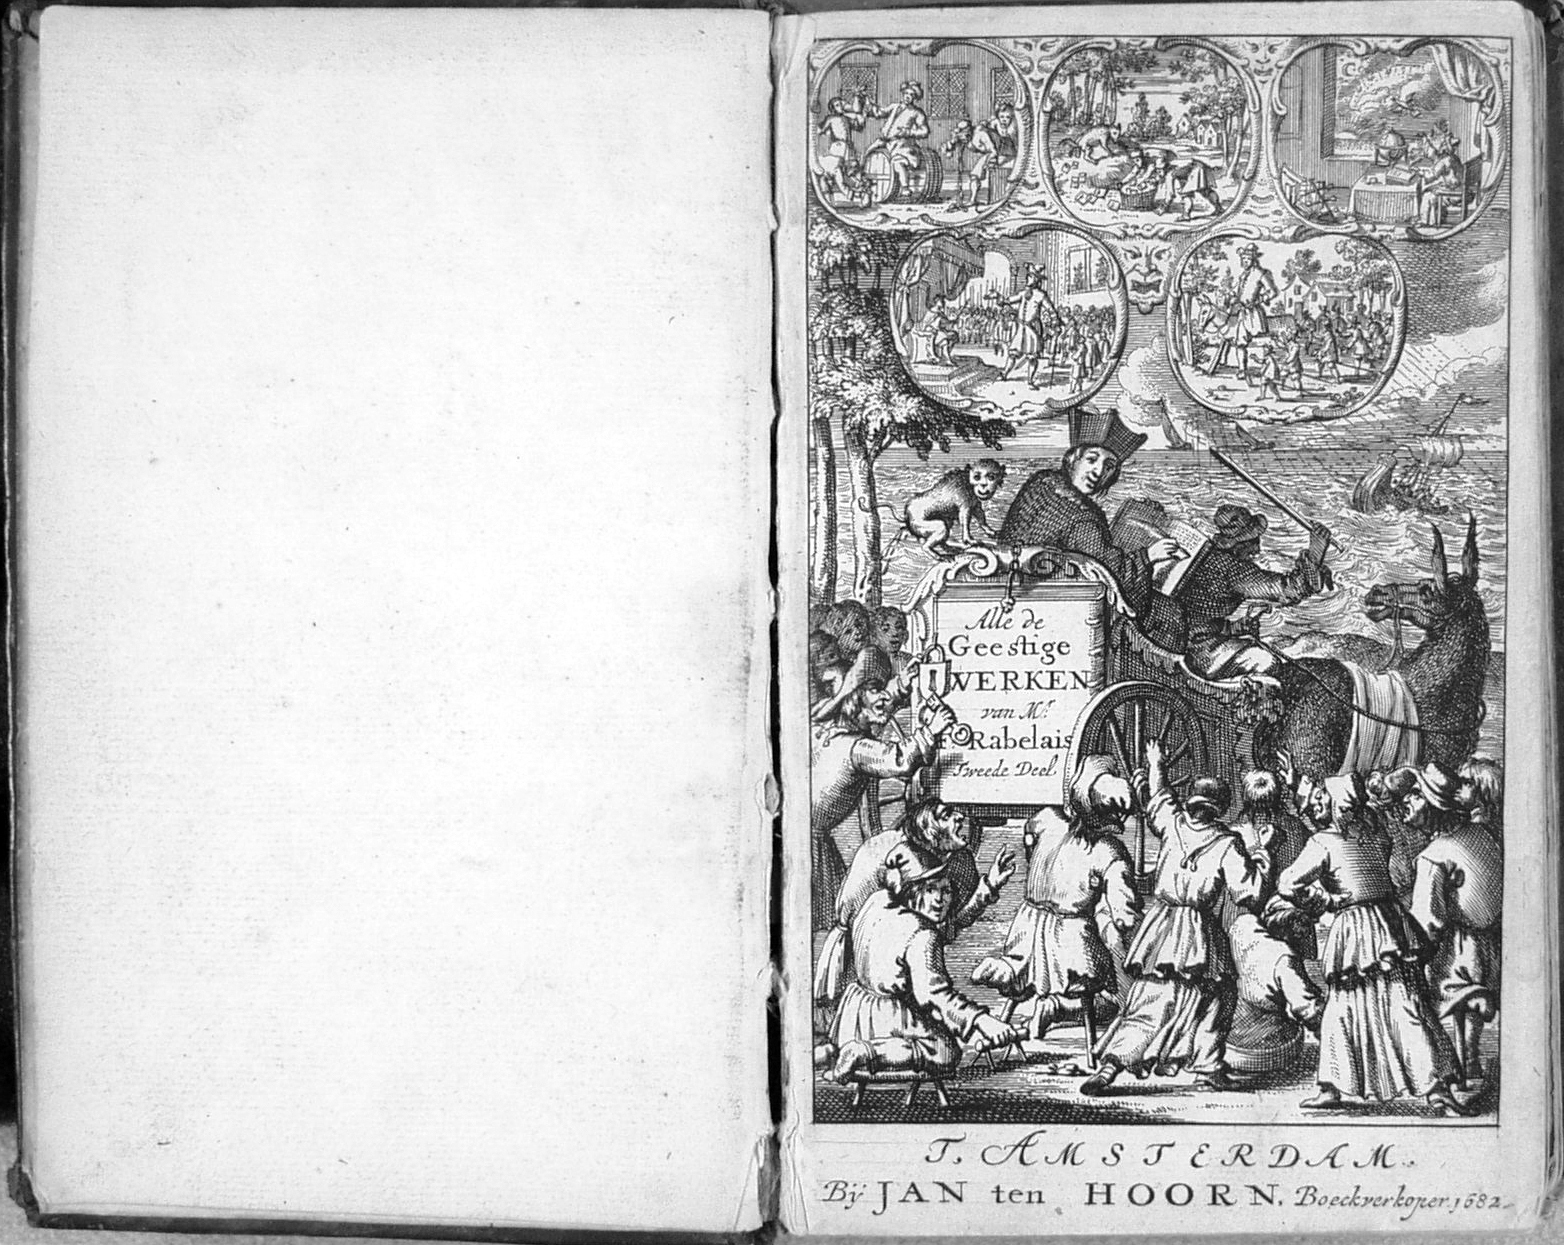 Alle de
Geestige
WERKEN
van Mr.
F Rabelais
Tweede Deel
T. AMSTERDAM.
Bij JAN ten HOORN. Boeckverkoper. 1682.